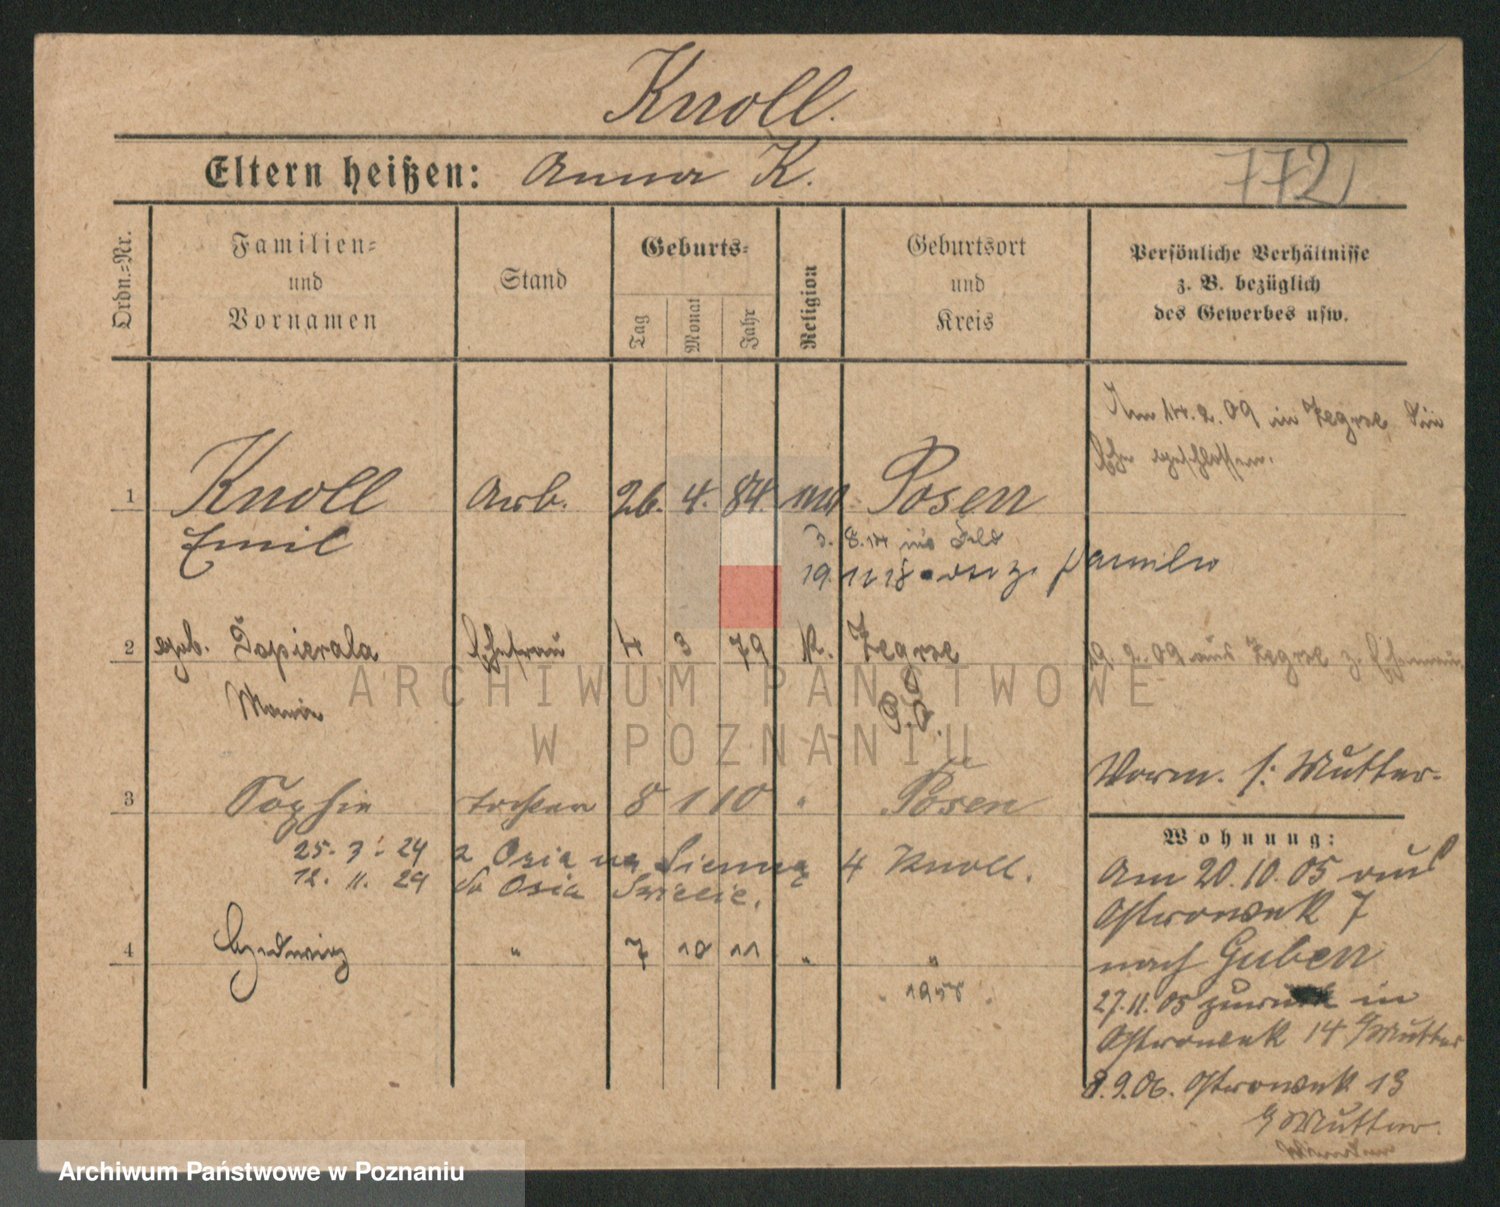 Knoll.
Eltern heißen: Anna K.
772
Ordn.=Nr.
Familien=
und
Vornamen
Stand
Geburts=
Tag
Monat
Jahr
Religion
Geburtsort
und
Kreis
Persönliche Verhältnisse
z. B. bezüglich
des Gewerbes usw.
Am 14.2.09 in Zegrze die
Ehe geschlossen.
1 Knoll Arb. 26. 4. 84. Posen
Emil
3. 8. 14 ins Feld
19. 11 18 z. Familie
2 geb. Topierala Ehefrau 4 3 79 K. Zegrze
19.2.09 aus Zegrze z. Ehemann
Maria
P.O.
Vorm. s: Mutter.
3 Sophie Tochter 8 1 10 " Posen
25. 3. 24 z Osia na Sienną 4 Knoll.
12. 11. 29 do Osia Świecie.
4 Hedwig " 7 10 11 " "
1958
Wohnung:
Am 20.10.05 aus
Ostrowek 7
nach Guben
27.11.05 zurück in
Ostrowek 14 b/Mutter
8.9.06. Ostrowek 13
b/Mutter.
ARCHIWUM PAŃSTWOWE
W POZNANIU
Archiwum Państwowe w Poznaniu